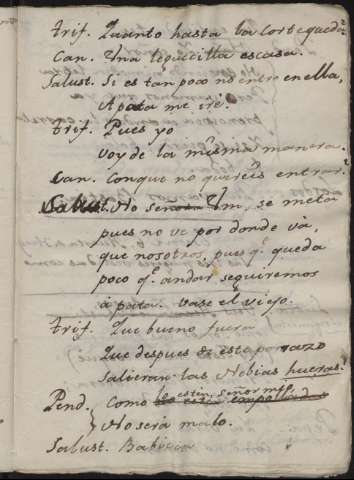 Trif. Quanto hasta la corte queda?
Can. Una legüecilla escasa.
Salust. Si es tan poco no entro en ella,
A pata me iré.
Trif. Pues yo
voy de la misma manera.
Can. Conque no quereis entrar?
Salust. No Señor Vm, se meta
pues no ve por donde va,
que nosotros, pues q.e queda
poco q.e andar seguiremos
á pata. vase el viejo.
Trif. Que bueno fuera
Que despues de este porrazo
Salieran las Nobias hueras.
Pend. Como lo estén, Señor mio,
No sera malo.
Salust. Babieca